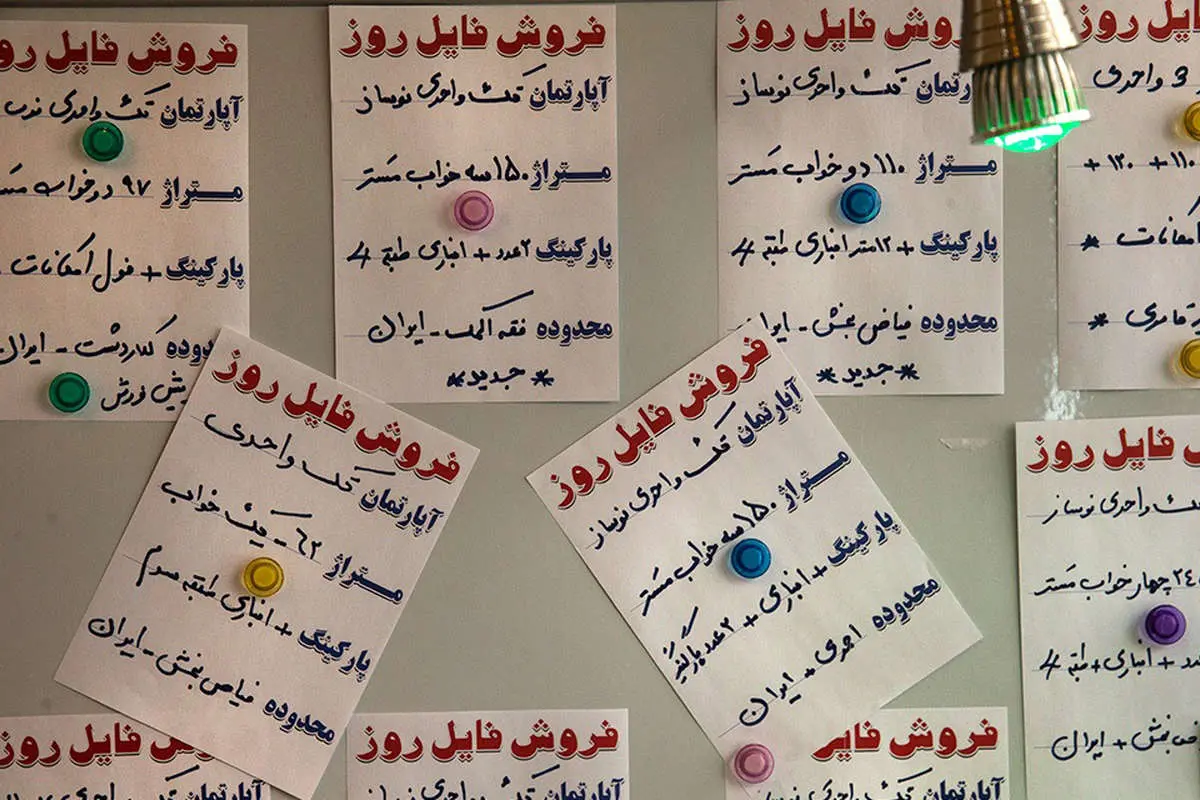 فروش فایل روز
آپارتمان تک واحدی
متراژ ۹۷ دو خواب
پارکینگ + فول امکانات
محدوده گلدشت - ایران
فروش فایل روز
آپارتمان تک واحدی نوساز
متراژ ۱۵۰ سه خواب مستر
پارکینگ ۲ عدد + انباری طبقه 4
محدوده - ایران
* جدید *
فروش فایل روز
آپارتمان تک واحدی نوساز
متراژ ۱۱۰ دو خواب مستر
پارکینگ + ۱۲ متر انباری طبقه 4
محدوده فیاض بخش - ایران
* جدید *
فایل روز
3 واحدی
۱۱۰ + ۱۲۰ +
امکانات *
*
فروش فایل روز
آپارتمان تک واحدی
متراژ ۶۲ یک خواب
پارکینگ + انباری طبقه سوم
محدوده فیاض بخش - ایران
فروش فایل روز
آپارتمان تک واحدی نوساز
متراژ ۱۵۰ سه خواب مستر
پارکینگ + انباری + ۲ عدد پارکینگ
محدوده + ایران
فایل روز
واحدی نوساز
چهار خواب مستر
+ انباری + طبقه 4
بخش + ایران
فروش فایل روز
آپارتمان تک واحدی
فروش فایل روز
آپارتمان تک واحدی نوساز
فروش فایل
آپارتمان تک واحدی نوساز